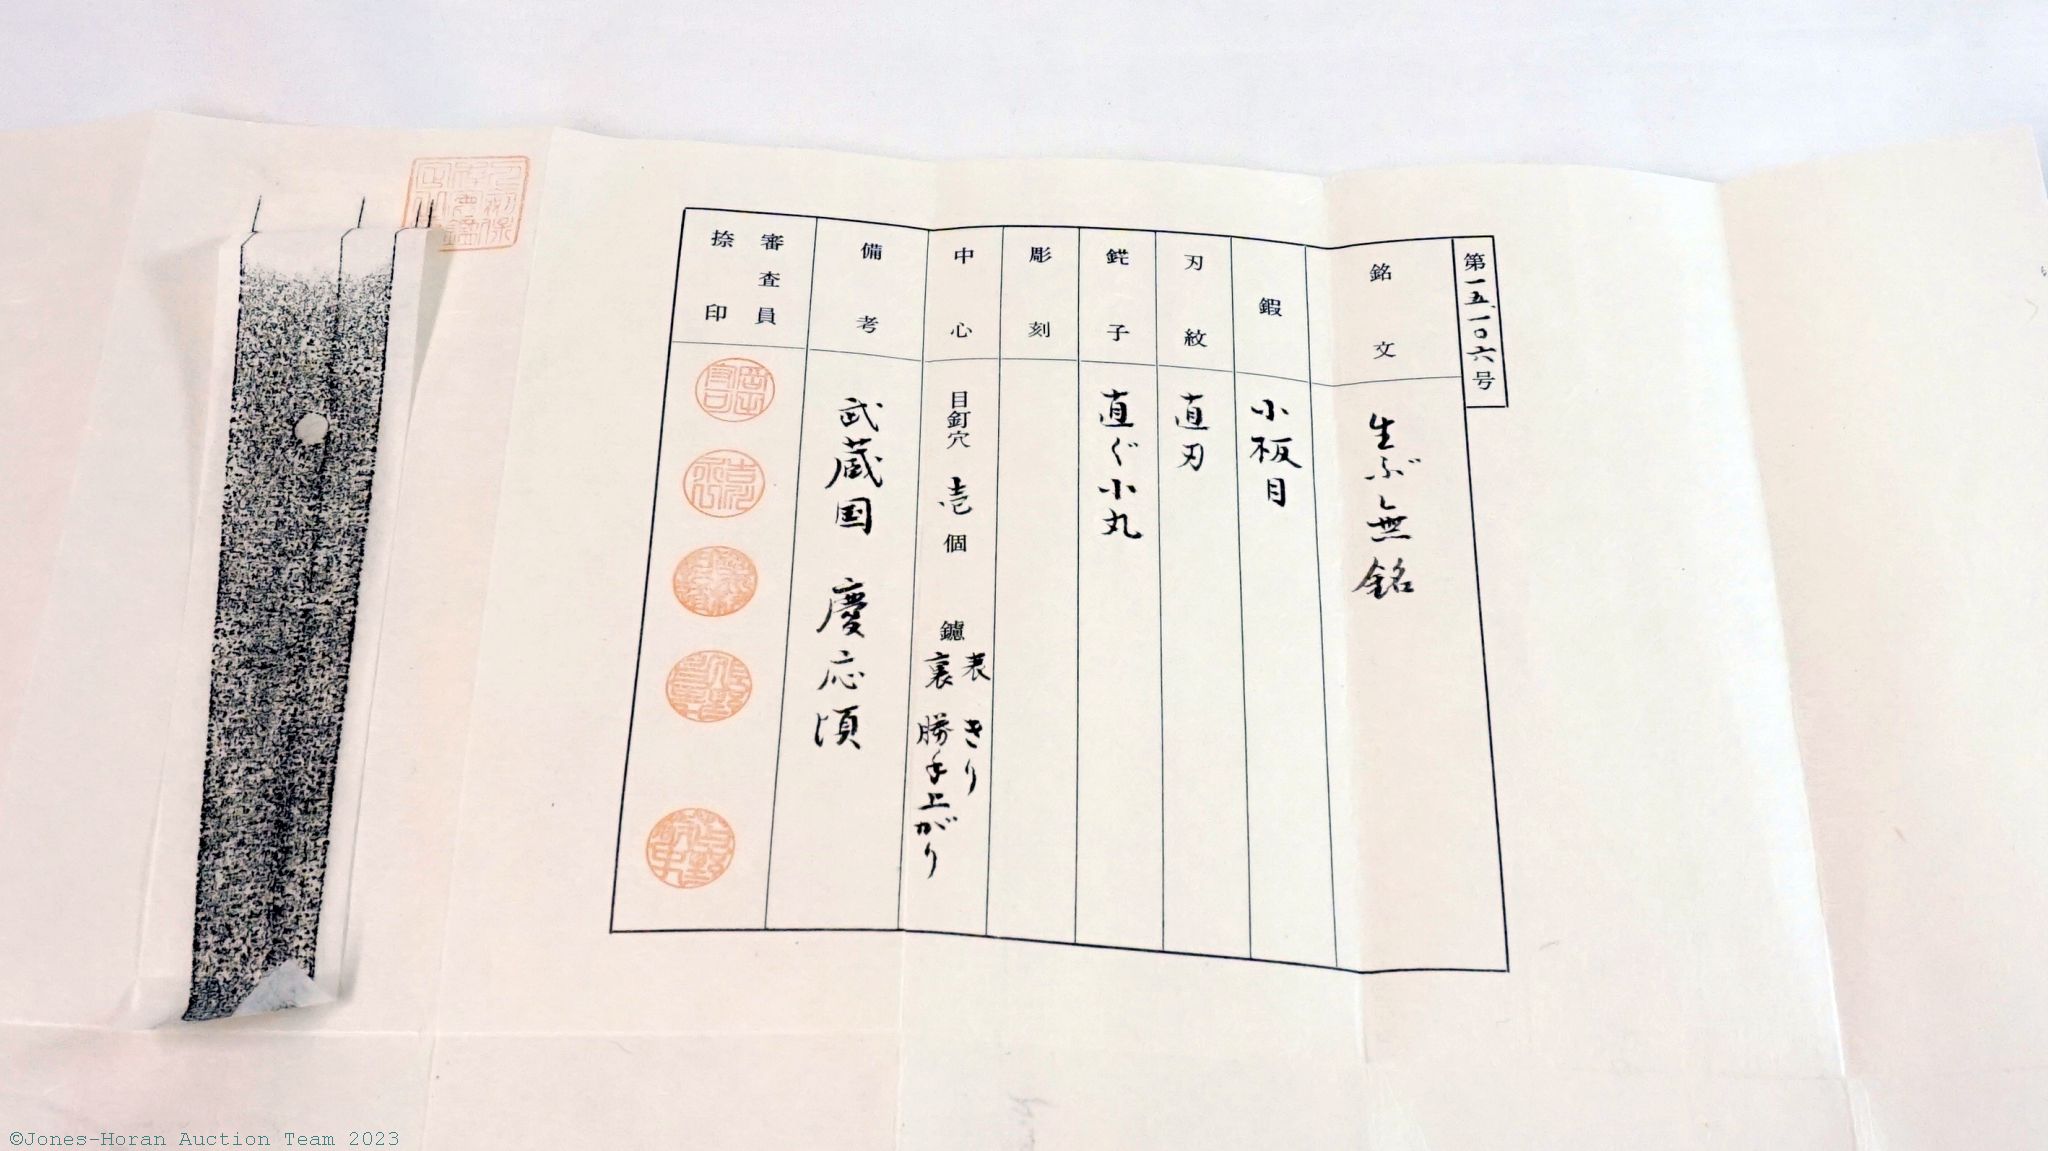 第一五、一〇六号
銘文
生ぶ無銘
鍜
小板目
刃紋
直刃
鋩子
直ぐ小丸
彫刻
中心
目釘穴 壱個
鑢
表 きり
裏 勝手上がり
備考
武蔵国 慶応頃
審査員
捺印
©Jones-Horan Auction Team 2023